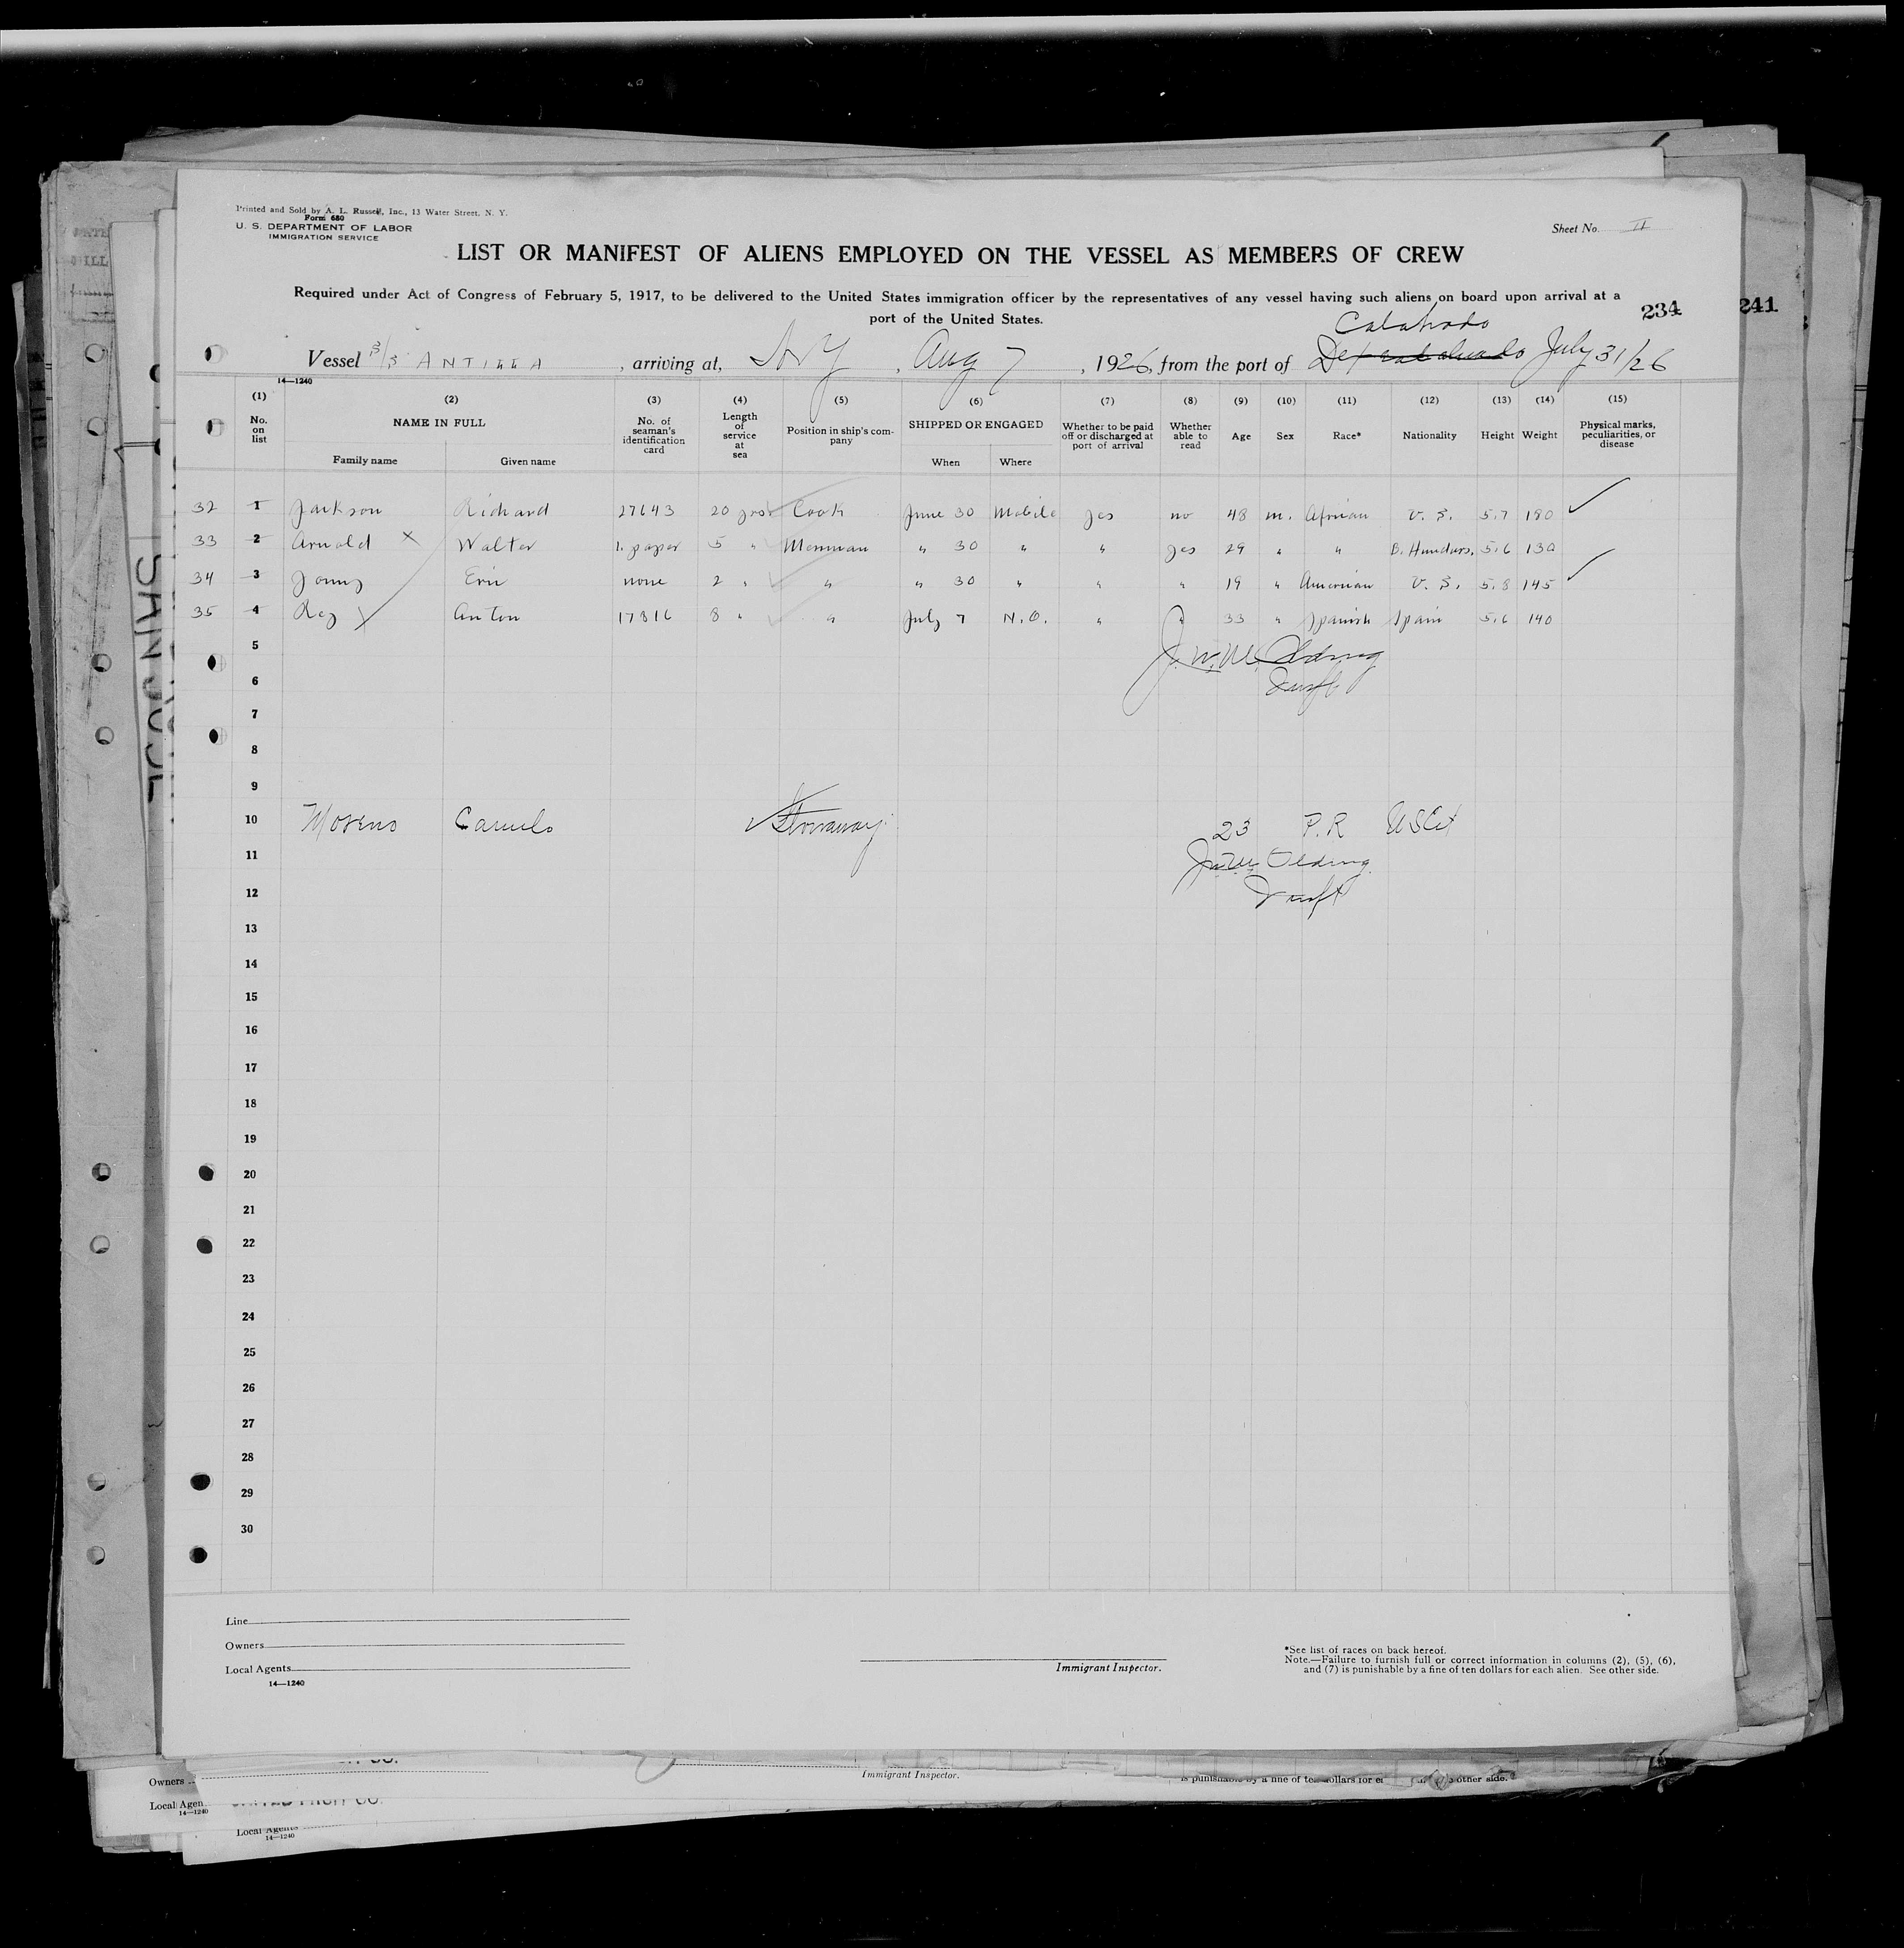 Printed and Sold by A. L. Russell, Inc., 13 Water Street, N. Y.
Form 680
U. S. DEPARTMENT OF LABOR
IMMIGRATION SERVICE
Sheet No. II
LIST OR MANIFEST OF ALIENS EMPLOYED ON THE VESSEL AS MEMBERS OF CREW
Required under Act of Congress of February 5, 1917, to be delivered to the United States immigration officer by the representatives of any vessel having such aliens on board upon arrival at a
port of the United States.
234
241
Vessel S/S ANTILLA, arriving at, N Y, Aug 7, 1926, from the port of July 31/26
14—1240
(1) No. on list
(2) NAME IN FULL Family name Given name
(3) No. of seaman's identification card
(4) Length of service at sea
(5) Position in ship's company
(6) SHIPPED OR ENGAGED When Where
(7) Whether to be paid off or discharged at port of arrival
(8) Whether able to read
(9) Age
(10) Sex
(11) Race*
(12) Nationality
(13) Height
(14) Weight
(15) Physical marks, peculiarities, or disease
32 1 Jackson Richard 27643 20 yrs Cook June 30 Mobile yes no 48 m. African U. S. 5.7 180
33 2 Arnold Walter 1. paper 5 " Messman " 30 " " yes 29 " " B. Hunduras, 5.6 130
34 3 Young Eric none 2 " " " 30 " " " 19 " American U. S. 5.8 145
35 4 Rey Anton 17316 8 " " July 7 N. O. " " 33 " Spanish Spain 5.6 140
5
6
7
8
9
10 Moreno Carmelo Stowaway 23 P.R US Cit
11
12
13
14
15
16
17
18
19
20
21
22
23
24
25
26
27
28
29
30
Line
Owners
Local Agents
14—1240
Immigrant Inspector.
*See list of races on back hereof.
Note.—Failure to furnish full or correct information in columns (2), (5), (6),
and (7) is punishable by a fine of ten dollars for each alien. See other side.
Owners
Local Agen
14—1240
Immigrant Inspector.
Local Agents
14—1240